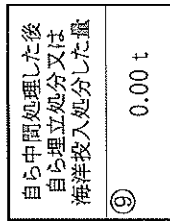 自ら中間処理した後
自ら埋立処分又は
海洋投入処分した量
⑨
0.00 t